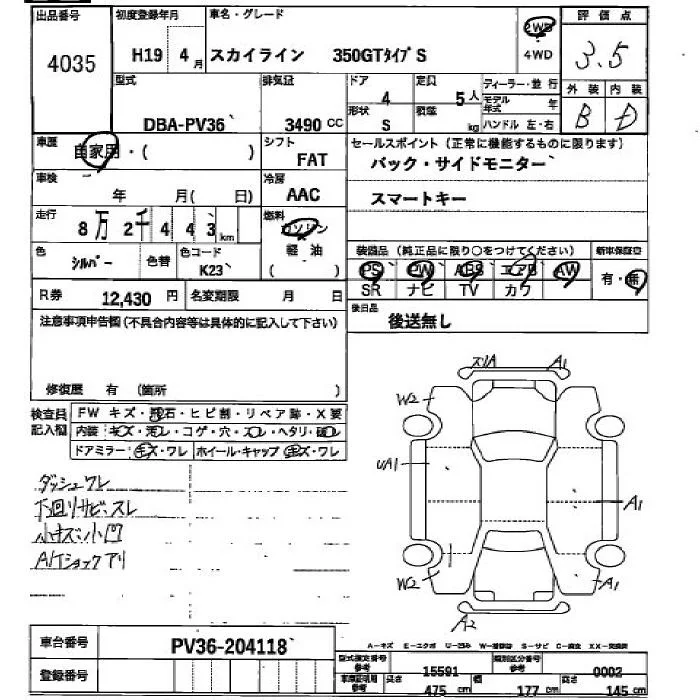 出品番号
4035
初度登録年月
H19 4月
車名・グレード
スカイライン 350GTタイプS
2WD
4WD
評価点
3.5
外装 内装
B D
型式
DBA-PV36
排気量
3490 CC
ドア
4
定員
5人
形状
S
積載
kg
ディーラー・並行
モデル年式 年
ハンドル 左・右
車歴
自家用・( )
シフト
FAT
セールスポイント (正常に機能するものに限ります)
バック・サイドモニター
スマートキー
車検
年 月( 日)
冷房
AAC
走行
8万2千443km
燃料
ガソリン
軽油
( )
色
シルバー
色替
色コード
K23
装備品 (純正品に限り○をつけてください)
PS PW ABS エアB AW
SR ナビ TV カワ
新車保証書
有・無
R券 12,430 円
名変期限 月 日
後日品
後送無し
注意事項申告欄(不具合内容等は具体的に記入して下さい)
修復歴 有 (箇所 )
検査員記入欄
FW キズ・飛石・ヒビ割・リペア跡・X要
内装・キズ・汚レ・コゲ・穴・スレ・ヘタリ・破レ
ドアミラー・キズ・ワレ ホイール・キャップ キズ・ワレ
ダッシュワレ
下廻リサビ、スレ
小キズ小凹
A/Tショックアリ
スリA A1
W2
UA1
A1
W2 A1
A2
車台番号
PV36-204118
登録番号
A-キズ E-エクボ U-凹み W-補修跡 S-サビ C-腐食 XX-交換済
型式指定番号
参考
15591
類別区分番号
参考
0002
車検証明用
参考
長さ
475 cm
幅
177 cm
高さ
145 cm